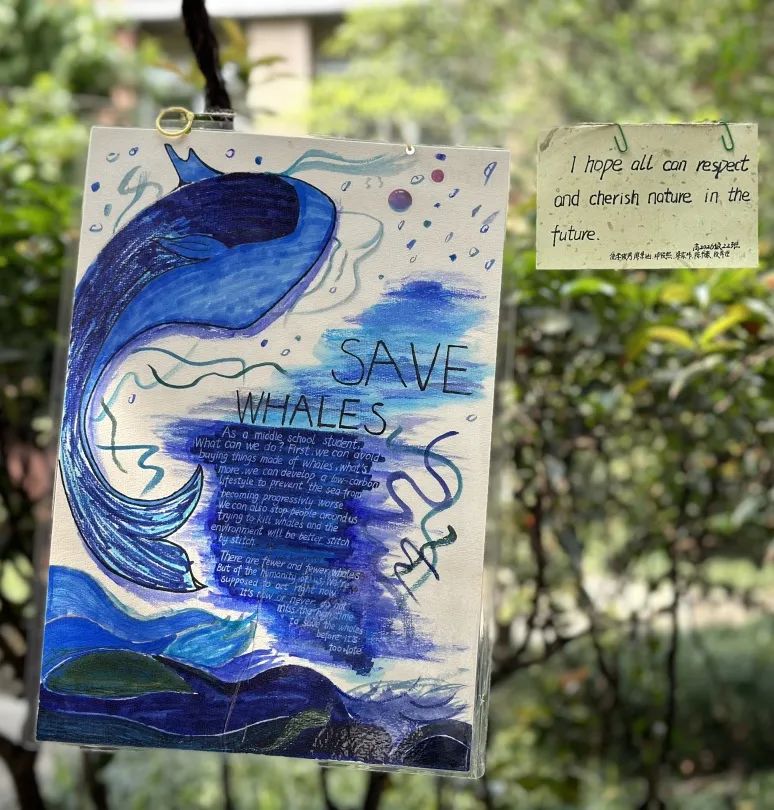 SAVE
WHALES
As a middle school student,
What can we do? First, we can avoid
buying things made of whales. what's
more, we can develop a low-carbon
lifestyle to prevent the sea from
becoming progressivly worse.
We can also stop people around us
trying to kill whales and the
environment will be better stitch
by stitch.
There are fewer and fewer whales
But of the humanity of us, we're
supposed to act right now.
It's now or never do not
miss the last time
to save the whales
before it's
too late
I hope all can respect
and cherish nature in the
future.